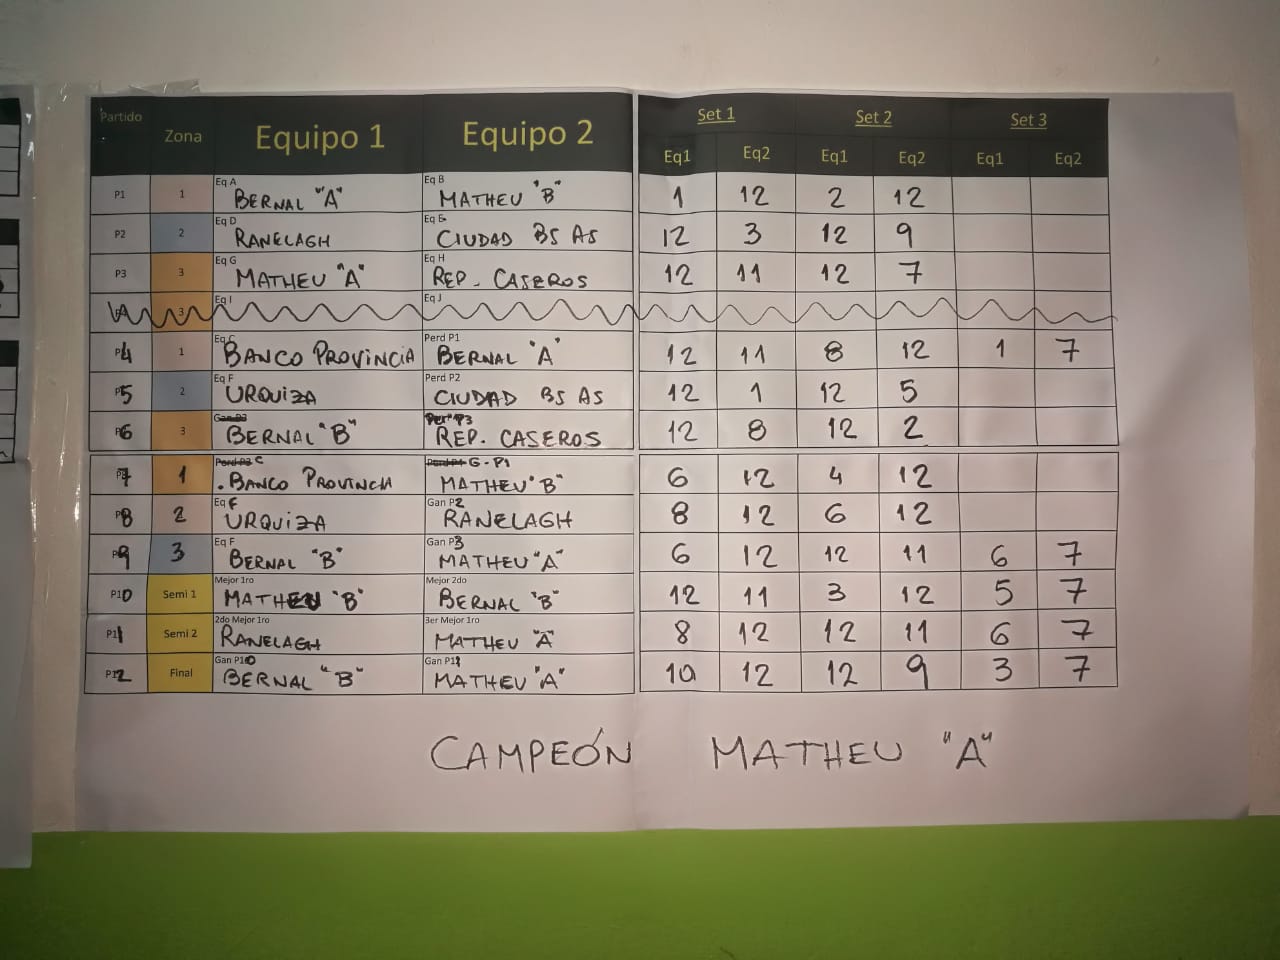 Partido Zona Equipo 1 Equipo 2 Set 1 Set 2 Set 3
Eq1 Eq2 Eq1 Eq2 Eq1 Eq2
P1 1 Eq A BERNAL "A" Eq B MATHEU "B" 1 12 2 12
P2 2 Eq D RANELAGH Eq E CIUDAD BS AS 12 3 12 9
P3 3 Eq G MATHEU "A" Eq H REP. CASEROS 12 11 12 7
3 Eq I Eq J
P4 1 Eq C BANCO PROVINCIA Perd P1 BERNAL "A" 12 11 8 12 1 7
P5 2 Eq F URQUIZA Perd P2 CIUDAD BS AS 12 1 12 5
P6 3 Gan P3 BERNAL "B" Per P3 REP. CASEROS 12 8 12 2
P7 1 Perd P3 C . BANCO PROVINCIA Perd P4 G-P1 MATHEU "B" 6 12 4 12
P8 2 Eq F URQUIZA Gan P2 RANELAGH 8 12 6 12
P9 3 Eq F BERNAL "B" Gan P3 MATHEU "A" 6 12 12 11 6 7
P10 Semi 1 Mejor 1ro MATHEU "B" Mejor 2do BERNAL "B" 12 11 3 12 5 7
P11 Semi 2 2do Mejor 1ro RANELAGH 3er Mejor 1ro MATHEU "A" 8 12 12 11 6 7
P12 Final Gan P10 BERNAL "B" Gan P11 MATHEU "A" 10 12 12 9 3 7
CAMPEÓN MATHEU "A"